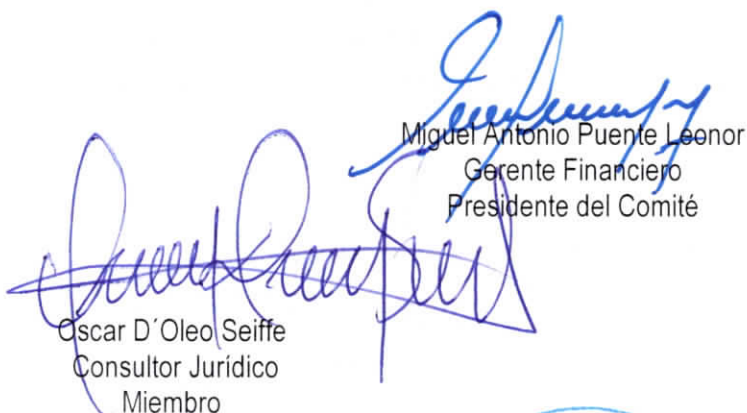 Miguel Antonio Puente Leonor
Gerente Financiero
Presidente del Comité
Oscar D´Oleo Seiffe
Consultor Jurídico
Miembro